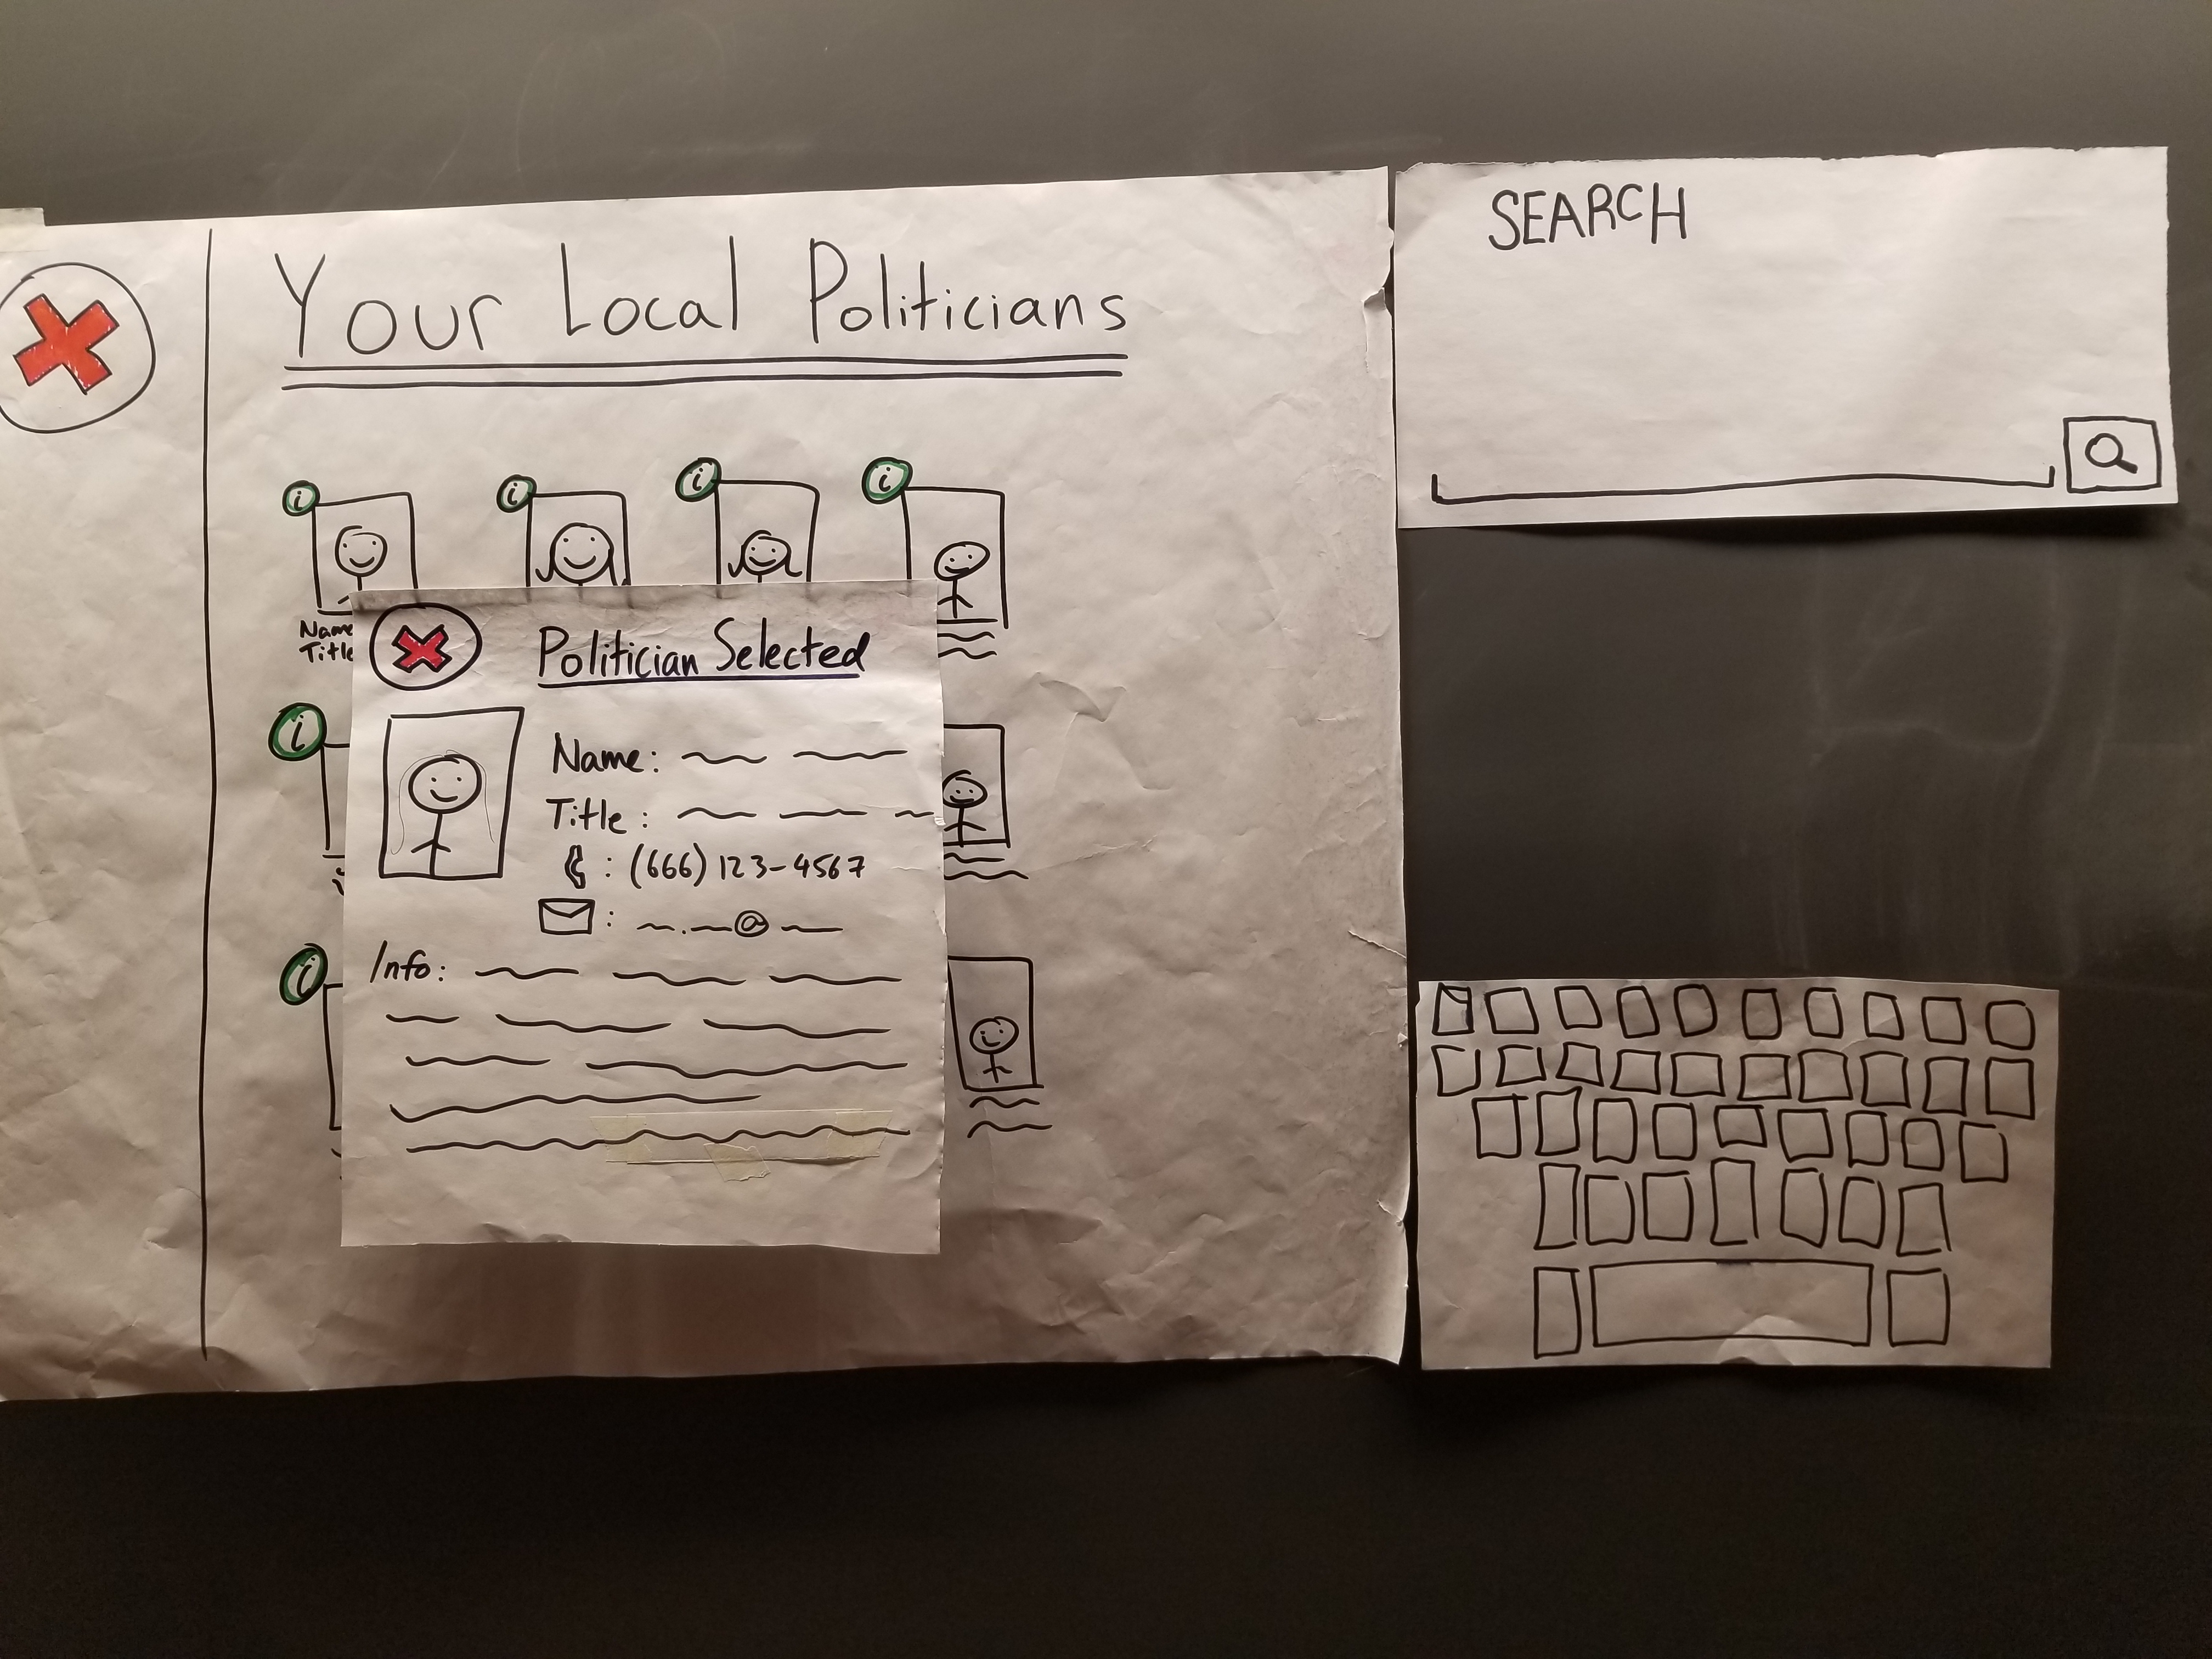 Your Local Politicians
i i i i
Name
Title
Politician Selected
i
Name:
Title:
: (666) 123-4567
: . @
i
Info:
SEARCH